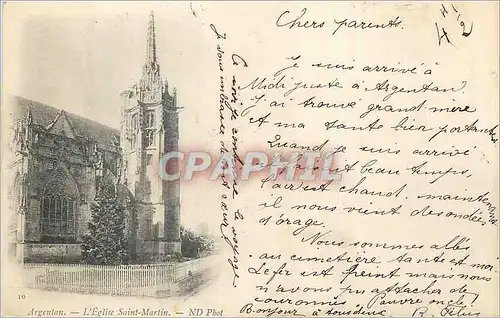 Chers parents.
Je suis arrivé à
Midi juste à Argentan.
J'ai trouvé grand mère
et ma tante bien portantes
Quand je suis arrivé
beau temps,
l'air est chaud. maintenant
il nous vient des ondées
d'orage.
Nous sommes allés
au cimetière tante et moi
Le fer est peint mais nous
n'avons pu attacher de
couronnes Pauvre oncle!
Bonjour à tous deux R.
Ce soir je continue le voyage
Je vous embrasse de tout cœur
CPARAMA
10
Argentan. — L'Église Saint-Martin. — ND Phot